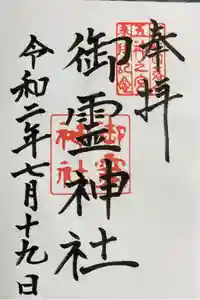 奉拝
御霊神社
令和二年七月十九日
御霊
神社